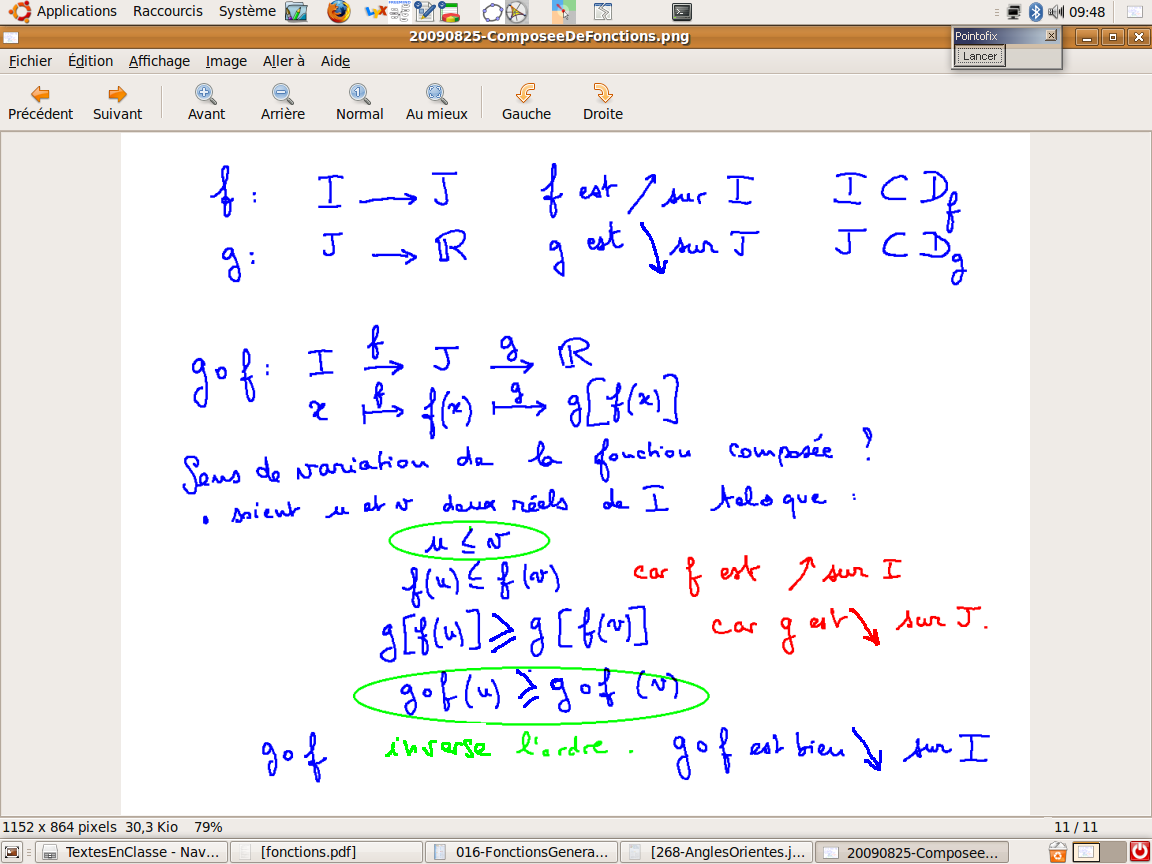 Applications Raccourcis Système 09:48
20090825-ComposeeDeFonctions.png
Pointofix
Lancer
Fichier Édition Affichage Image Aller à Aide
Précédent Suivant Avant Arrière Normal Au mieux Gauche Droite
f : I → J f est ↗ sur I I ⊂ D_f
g : J → ℝ g est ↘ sur J J ⊂ D_g
g∘f : I →f J →g ℝ
x ↦f f(x) ↦g g[f(x)]
Sens de variation de la fonction composée ?
• soient u et v deux réels de I tels que :
u ≤ v
f(u) ≤ f(v) car f est ↗ sur I
g[f(u)] ≥ g[f(v)] car g est ↘ sur J.
g∘f(u) ≥ g∘f(v)
g∘f inverse l'ordre. g∘f est bien ↘ sur I
1152 x 864 pixels 30,3 Kio 79% 11 / 11
TextesEnClasse - Nav... [fonctions.pdf] 016-FonctionsGenera... [268-AnglesOrientes.j... 20090825-Composee...